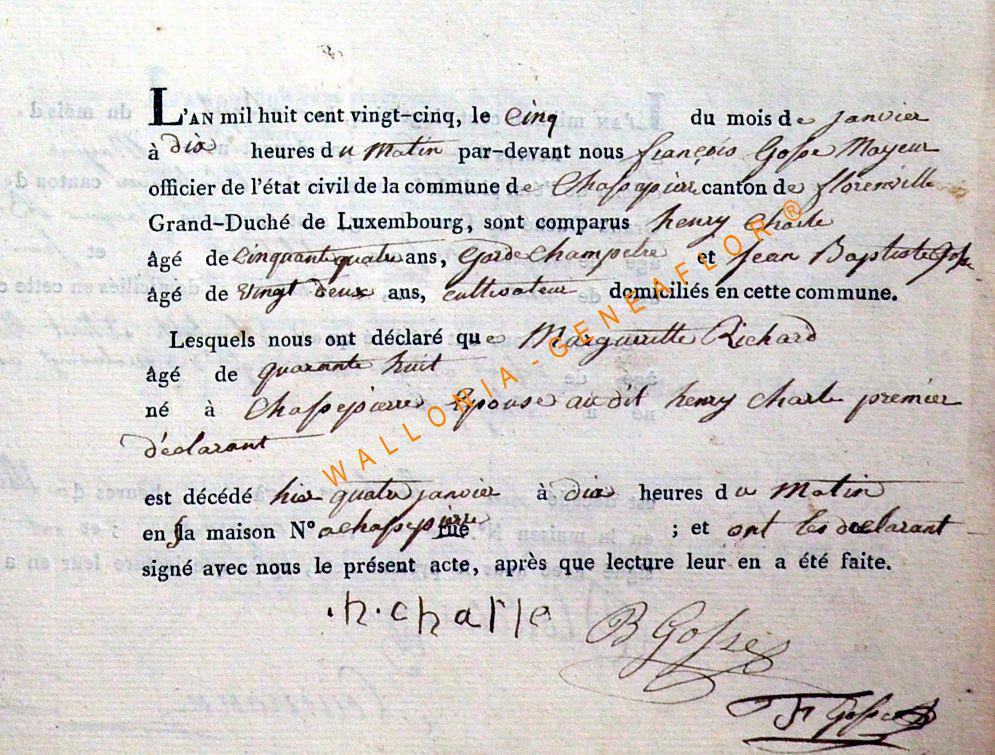 L'AN mil huit cent vingt-cinq, le cinq du mois de janvier
à dix heures du matin par-devant nous françois Gosse Mayeur
officier de l'état civil de la commune de Chassepierre canton de florenville
Grand-Duché de Luxembourg, sont comparus henry Charle
âgé de Cinquante quatre ans, Garde Champetre et Jean Baptiste Gosse
âgé de Vingt deux ans, cultivateur domiciliés en cette commune.
Lesquels nous ont déclaré que Margueritte Richard
âgé de quarante huit
né à Chassepierre Epouse au dit henry Charle prémier
déclarant
est décédé hier quatre janvier à dix heures du Matin
en sa maison N° a chassepierre rue ; et ont les declarant
signé avec nous le présent acte, après que lecture leur en a été faite.
.h.charle
B Gosse
F Gosse
WALLONIA - GENEAFLOR ®